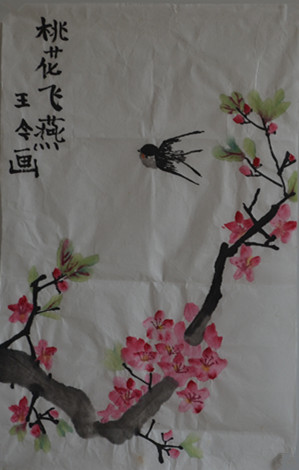 桃花飞燕
王令画